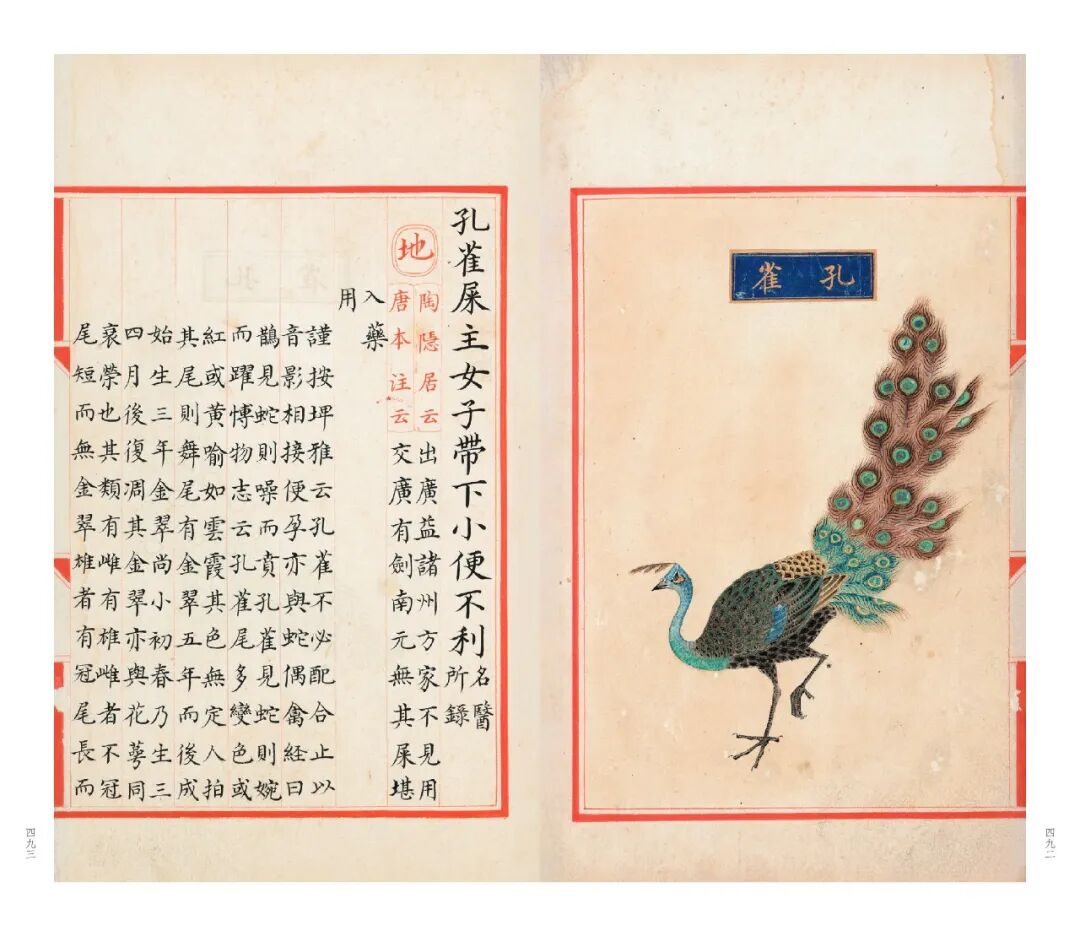 孔雀
四九二
孔雀屎主女子帶下小便不利
名醫
所錄
地
陶隱居云出廣益諸州方家不見用
唐本注云交廣有劍南元無其屎堪
入藥
用
謹按坪雅云孔雀不必配合止以
音影相接便孕亦與蛇偶禽経曰
鵲見蛇則噪而賁孔雀見蛇則婉
而躍博物志云孔雀尾多變色或
紅或黄喻如雲霞其色無定人拍
其尾則舞尾有金翠五年而後成
始生三年金翠尚小初春乃生三
四月後復凋其金翠亦與花萼同
衰榮也其類有雌有雄雌者不冠
尾短而無金翠雄者有冠尾長而
四九三